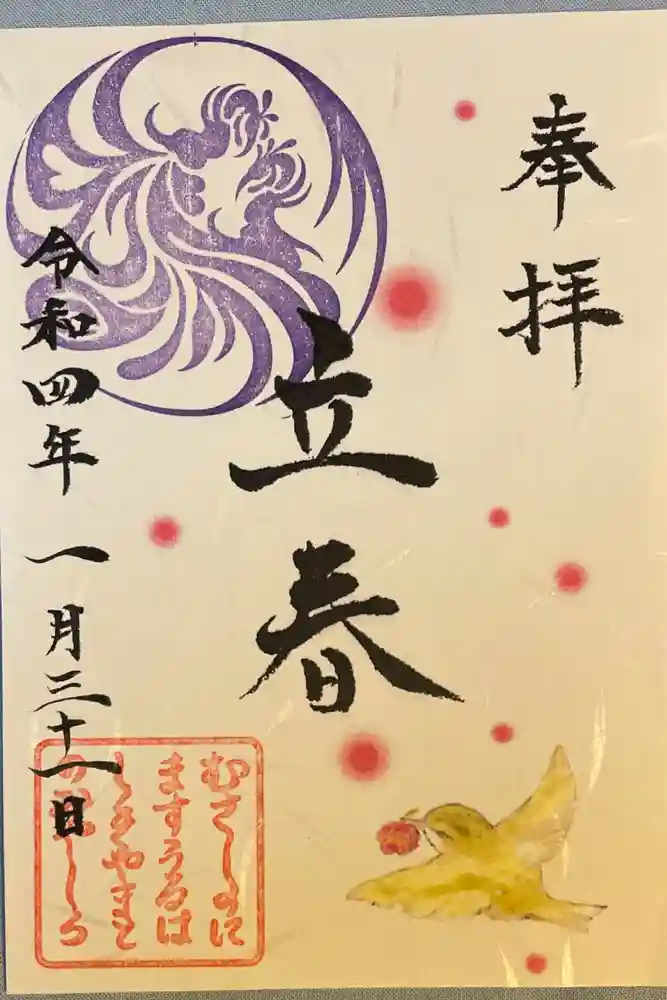 奉拝
立春
令和四年 一月三十一日
むさしのに
ますうるは
しきやまと